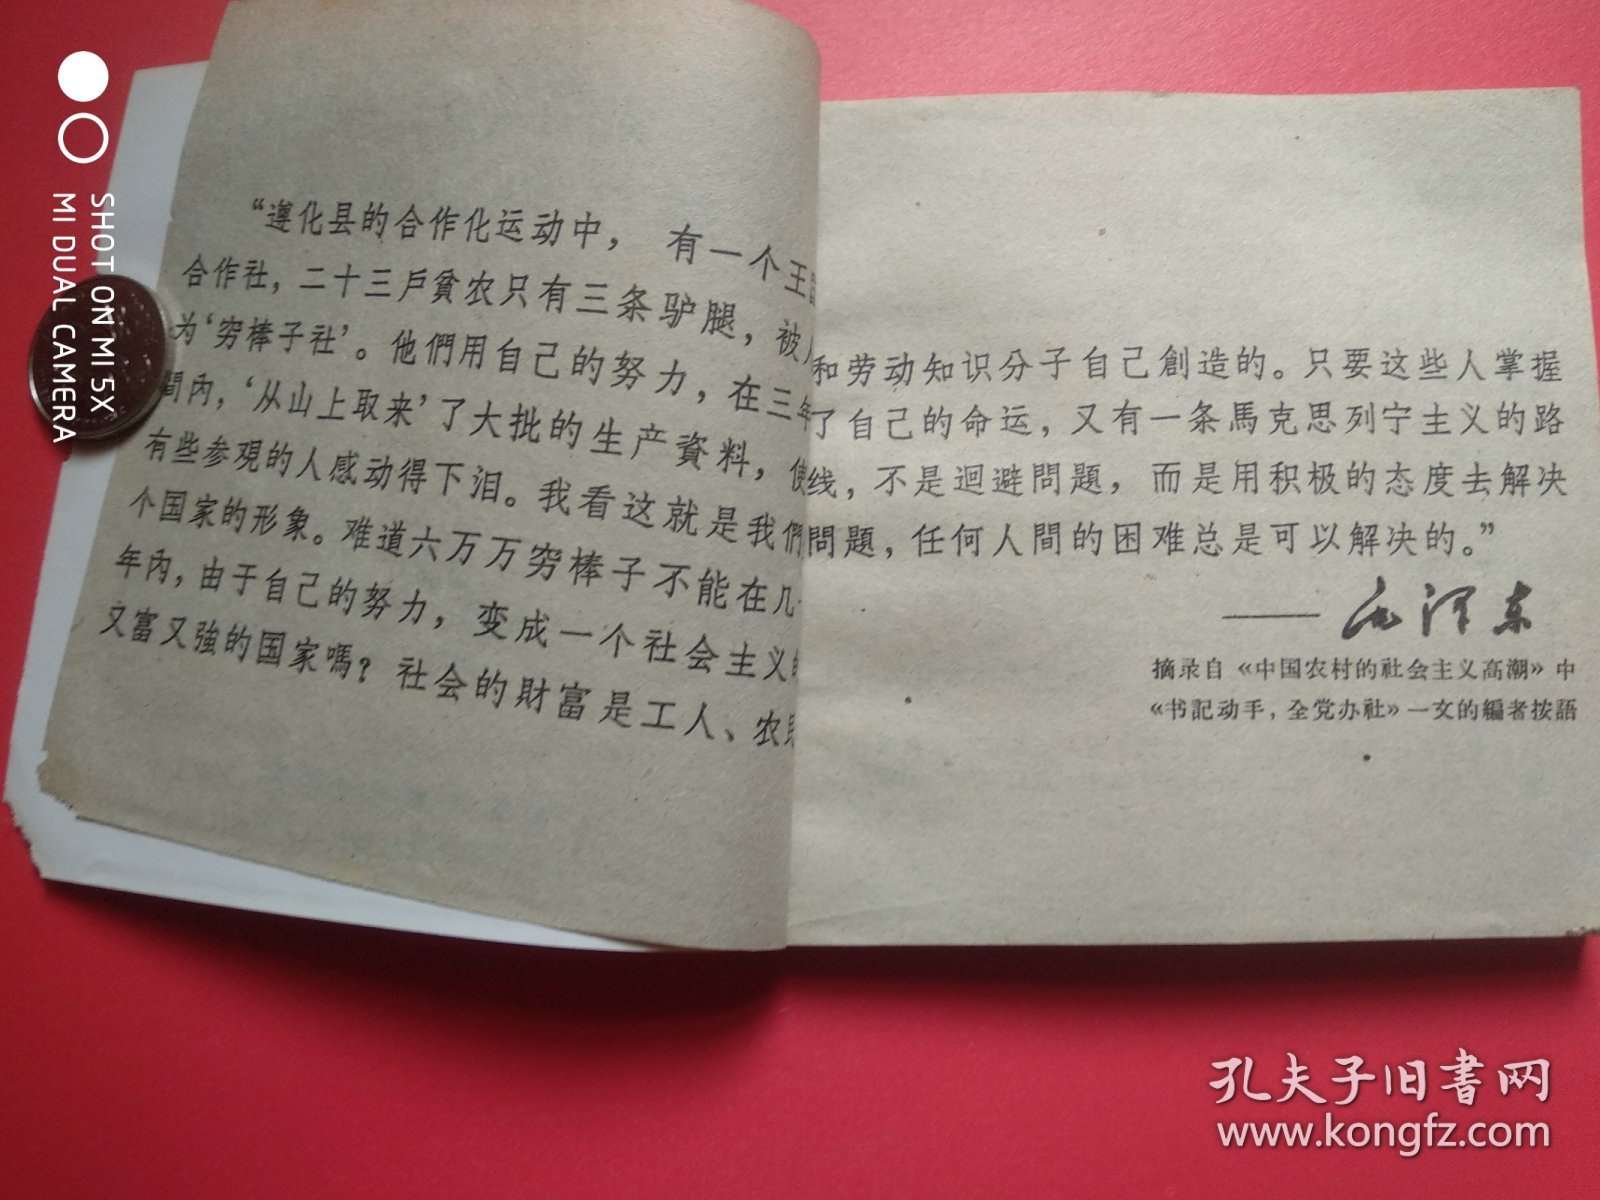 “遵化县的合作化运动中， 有一个王
合作社，二十三戶貧农只有三条驴腿，被
为‘穷棒子社’。他們用自己的努力，在三年
間內，‘从山上取来’了大批的生产資料，使
有些参观的人感动得下泪。我看这就是我們
个国家的形象。难道六万万穷棒子不能在几
年內，由于自己的努力，变成一个社会主义的
又富又強的国家嗎？社会的財富是工人、农民
和劳动知识分子自己創造的。只要这些人掌握
了自己的命运，又有一条馬克思列宁主义的路
线，不是迴避問題，而是用积极的态度去解决
問題，任何人間的困难总是可以解决的。”
——毛泽东
摘录自《中国农村的社会主义高潮》中
《书記动手，全党办社》一文的編者按語
SHOT ON MI 5X
MI DUAL CAMERA
孔夫子旧書网
www.kongfz.com